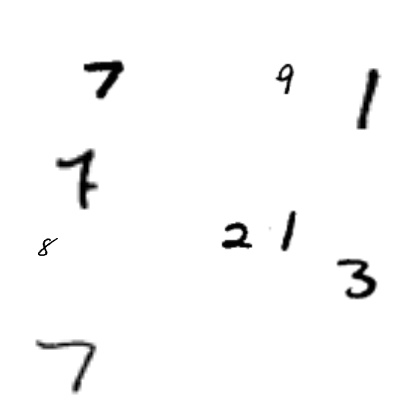 7 9 1
7
8 2 1
3
7